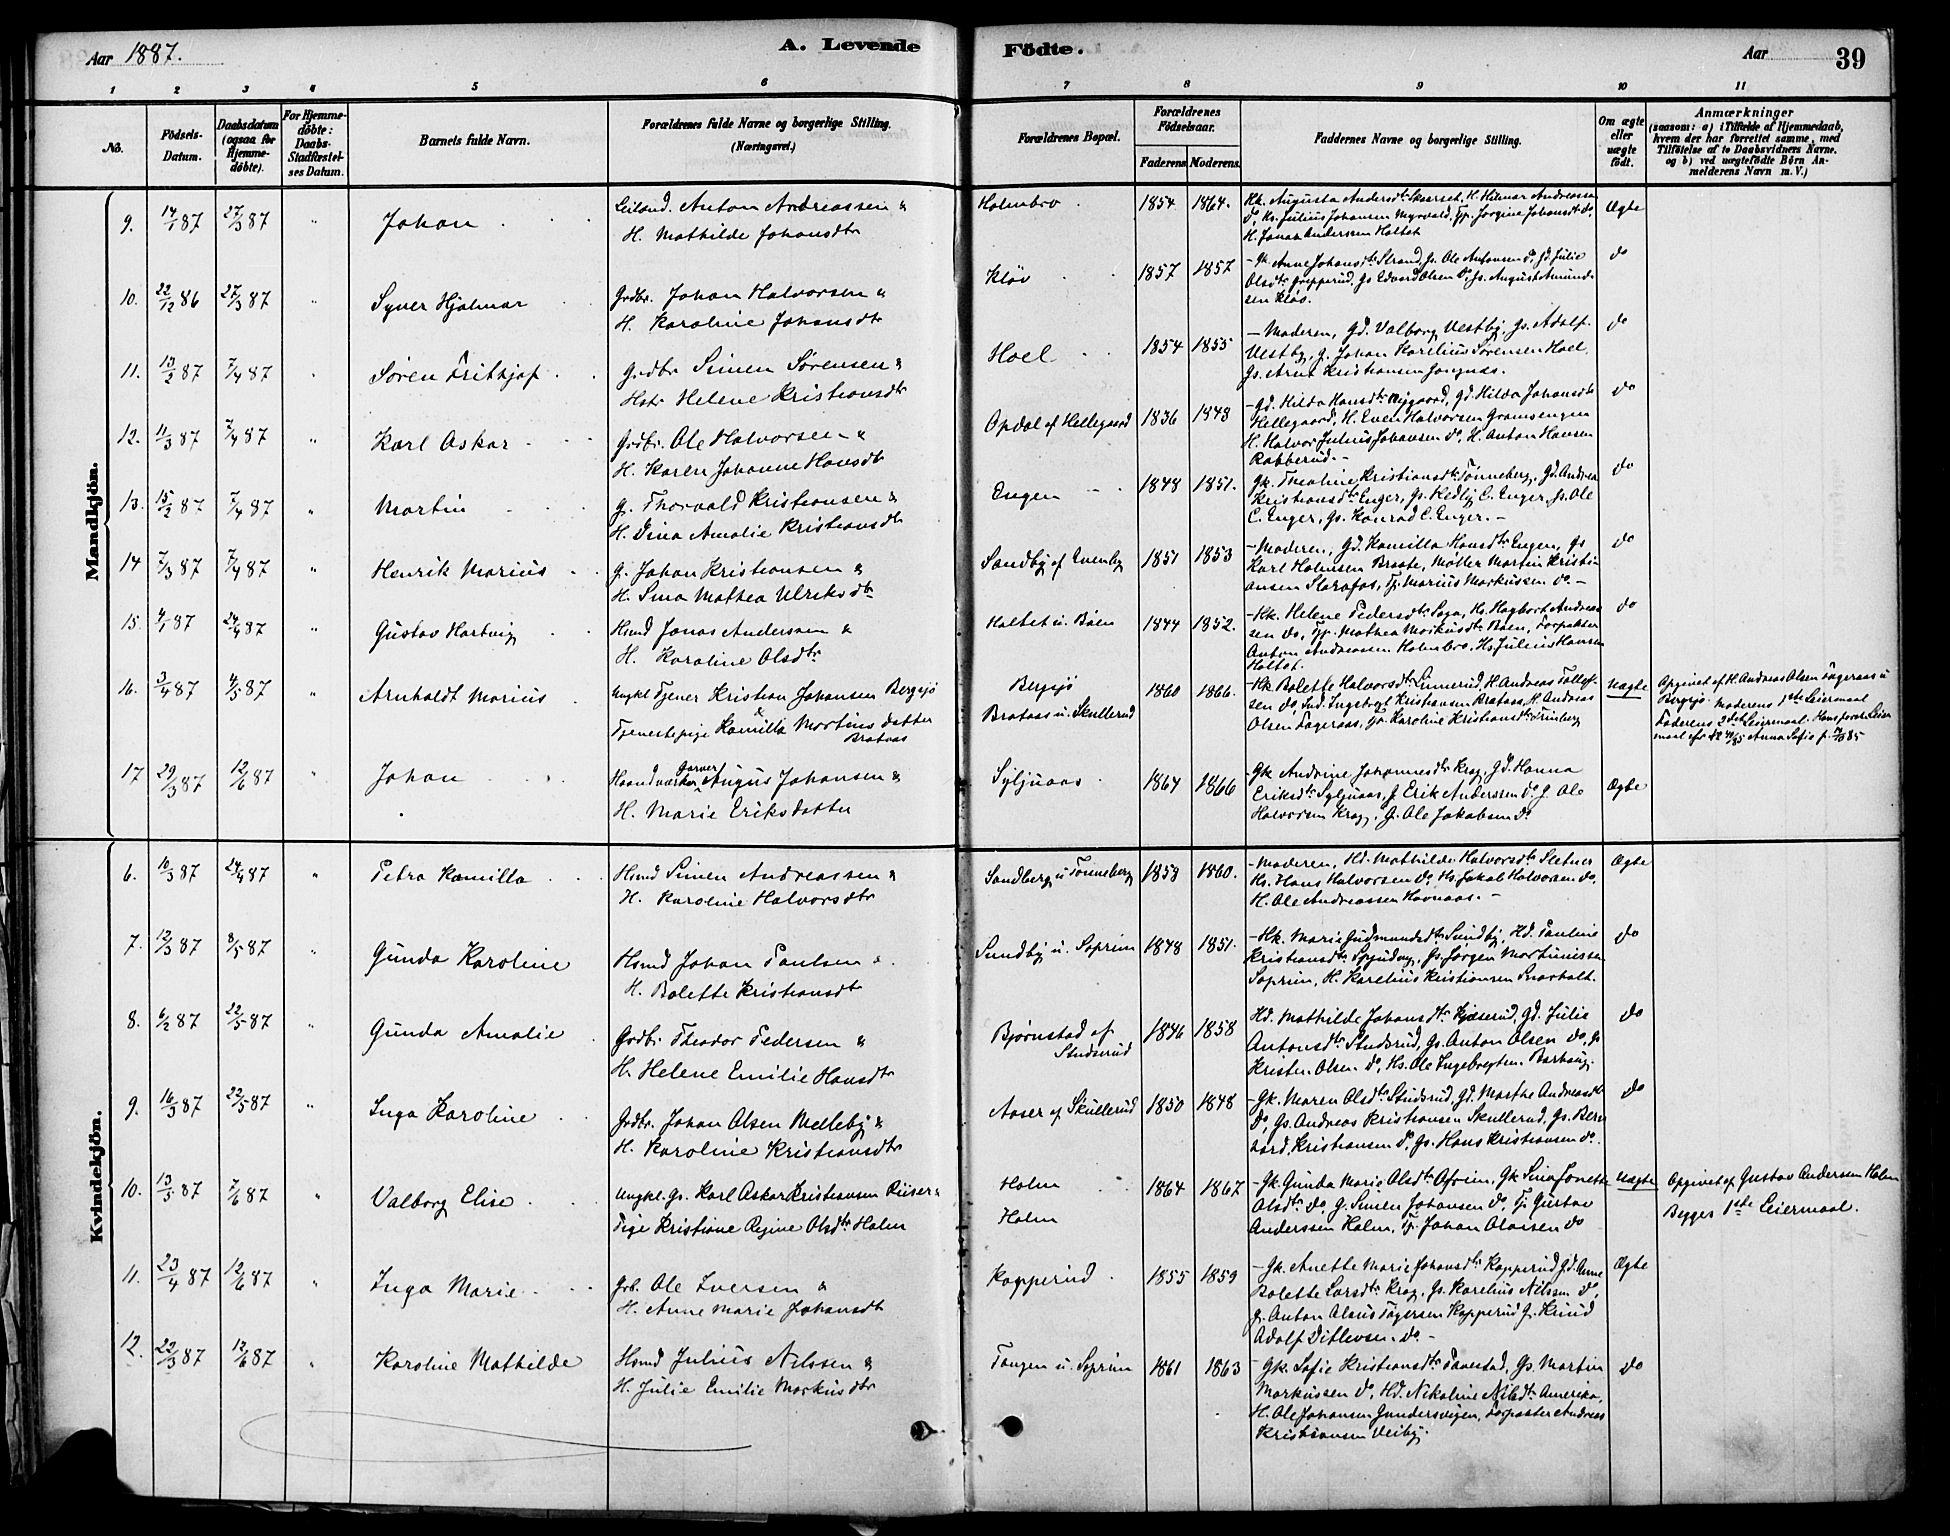 Aar 1887.
A. Levende
Födte.
Aar
39
1 2 3 4 5 6
7 8 9 10 11
No.
Födsels-Datum.
Daabsdatum (ogsaa for Hjemmedöbte).
For Hjemmedöbte: Daabs-Stadfæstelses Datum.
Barnets fulde Navn.
Forældrenes fulde Navne og borgerlige Stilling.
(Næringsvei.)
Forældrenes Bopæl.
Forældrenes Födselsaar.
Faderens. Moderens.
Faddernes Navne og borgerlige Stilling.
Om ægte eller uægte födt.
Anmærkninger
(saasom: a) i Tilfælde af Hjemmedaab,
hvem der har forrettet samme, med
Tilföielse af to Daabsvidners Navne.
og b) ved uægtefödte Börn An-
melderens Navn m. V.)
Mandkjön.
9. 14/1 87 27/3 87 " Johan
Leiland. Anton Andreassen &
H. Mathilde Johansdtr
Holmbro 1854 1864.
Kk. Augusta Andersdtr Skaarset, H. Hilmar Andreassen
do, Ks. Julius Johansen Myrvold, Tp. Jørgine Johansdtr do,
H. Jonas Anderssen Holtet
Ægte
10. 22/12 86 27/3 87 " Syver Hjalmar
Grdbr. Johan Halvorsen &
H. Karoline Johansdtr
Kløv 1857 1857
- Gk. Anne Johansdtr Strand, Gs. Ole Antonsen do, Gd Julie
Olsdtr Gripperud, Gs Edvard Olsen do, Gs. August Amund-
sen Kløv.
do
11. 13/2 87 7/4 87 " Søren Frithjof
Grdbr Simen Sørensen &
Hstr Helene Kristiansdtr
Hoel 1854 1855
- Moderen, Gd. Valborg Vestby, Gs. Adolf
Vestby, G. Johan Karelius Sørensen Hoel,
Gs. Arnt Kristiansen Jongnæs.
do
12. 11/3 87 7/4 87 " Karl Oskar
Grdbr. Ole Halvorsen &
H. Karen Johanne Hansdtr
Opdal af Hellegaard 1836 1848
- Gd. Hilda Hansdtr Nygaard, Gd. Hilda Johansdtr
Hellegaard, H. Even Halvorsen Gramsengen
H. Halvor Julius Johansen do, H. Anton Hansen
Rabberud. -
do
13. 15/2 87 7/4 87 " Martin
G. Thorvald Kristiansen &
H. Dina Amalie Kristiansdtr
Engen 1848 1851.
Gk. Theoline Kristiansdtr Tønneberg, Gd. Andrea
Kristiansdtr Enger, Gs. Hedly C. Enger, Gs. Ole
C. Enger, Gs. Konrad C. Enger. -
do
14 7/3 87 7/4 87 " Henrik Marius
G. Johan Kristiansen &
H. Sina Mathea Ulriksdtr
Sandby af Evenby 1851 1853
- Moderen, Gd. Kamilla Hansdtr Engen, Gs
Karl Halvorsen Braate, Møller Martin Kristi-
ansen Slorafos, Tj. Marius Markussen do -
do
15. 4/1 87 24/4 87 " Gustav Hartvig
Hsmd Jonas Anderssen &
H. Karoline Olsdtr
Holtet u. Bøen 1844 1852.
- Kk. Helene Pedersdtr Saga, Hs. Hagbart Andreas-
sen do, Tp. Mathea Markusdtr Bøen, Forpakter
Anton Andreassen Holmbro, Hs. Julius Hansen
Holtet.
do
16. 3/4 87 4/5 87 " Arnholdt Marius
Ungkl Tjener Kristian Johansen Bergsjø
Tjenestepige Kamilla Martinsdatter
Brataas
Bergsjø
Brataas u. Skullerud 1860 1866.
- Kk Bolette Halvorsdtr Linnerud, H. Andreas Tollef-
sen do, Ind. Ingebregt Kristiansen Brataas, H. Andreas
Olsen Fageraas, Gp. Karoline Kristiansdtr Trinborg
Uægte
Opgivet af H. Andreas Olsen Fageraas u
Bergsjø. Moderens 1ste Leiermaal
Faderens 2det Leiermaal. Hans første Leier-
maal efr Anna Sofie f. 85
17 29/3 87 12/6 87 " Johan
Haandværker Garver Augus Johansen &
H. Marie Eriksdatter
Syljuaas 1864 1866
Gk Andrine Johannesdtr Krog, Gd. Hanna
Eriksdtr Syljuaas, G Erik Anderssen do G. Ole
Halvorsen Krog, G. Ole Jakobsen do
Ægte
Kvindekjön.
6. 10/3 87 24/4 87 " Petra Kamilla
Hsmd Simen Andreassen &
H. Karoline Halvorsdtr
Sandberg u Tønneberg 1858 1860.
- Moderen, Hd. Mathilde Halvorsdtr Sletner
Hs. Hans Halvorsen do, Hs Jakob Halvorsen do,
H. Ole Andreassen Havnaas. -
Ægte
7. 12/3 87 8/5 87 " Gunda Karoline
Hsmd Johan Paulsen &
H. Bolette Kristiansdtr
Sundby u. Soprim 1848 1851.
- Hk. Marie Gudmundsdtr Sundby, Hd. Pauline
Kristiansdtr Spydevg, Gs. Jørgen Mortinussen
Soprim, H. Karelius Kristiansen Snartalt.
do
8. 6/2 87 22/5 87 " Gunda Amalie
Grdbr. Theodor Pedersen &
H. Helene Emilie Hansdtr
Bjørnstad af
Studsrud 1846 1858
Hd. Mathilde Johansdtr Kjæserud, Gd. Julie
Antonsdtr Studsrud, Gs. Anton Olsen do, Gs
Kristen Olsen do, Hs. Ole Ingebregtsen Barhaug.
do
9. 16/3 87 22/5 87 " Inga Karoline
Grdbr. Johan Olsen Melleby &
H. Karoline Kristiansdtr
Aaser af Skullerud 1850 1848
- Gk. Maren Olsdtr Studsrud, Gd. Marthe Andreasdtr
do, Gs. Andreas Kristiansen Skullerud, Gs. Bern-
hard Kristiansen do, Gs. Hans Kristiansen do.
do
10. 13/5 87 7/6 87 " Valborg Elise
Ungkl. Gs. Karl Oskar Kristiansen Riiser &
Pige Kristiane Regine Olsdtr Holm
Holm
Holm 1864 1867
- Gk. Gunda Marie Olsdtr Ofrim, Gk Sina Jonette
Olsdtr do, G. Simen Johansen do, Tj. Gustav
Anderssen Holm, Tj. Johan Olaisen do
Uægte
Opgivet af Gustav Anderssen Holm
Begges 1ste Leiermaal.
11. 23/4 87 12/6 87 " Inga Marie
Grb. Ole Iversen &
H. Anne Marie Johansdtr
Kopperud 1855 1859
- Gk. Anette Marie Johansdtr Kopperud, Gd. Anne
Bolette Larsdtr Krog, Gs. Karelius Nilssen do,
G. Anton Olaus Fagersen Kopperud G. Knud
Adolf Ditlevsen do -
Ægte
12. 22/3 87 12/6 87 " Karoline Mathilde
Hsmd Julius Nilssen &
H. Julie Emilie Markusdtr
Tangen u. Soprim 1861 1863
- Gk. Sofie Kristiansdtr Tavestad, Gs. Martin
Markussen do, Hd. Nikoline Nilsdtr Amerika,
H. Ole Johansen Gundersvigen, Forpakter Andreas
Kristiansen Veiby.
do